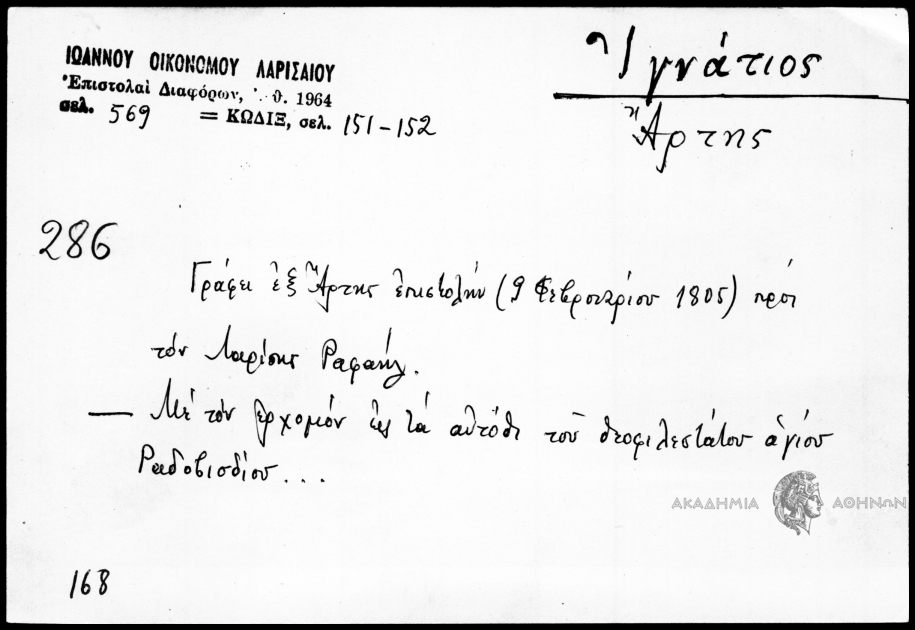 ΙΩΑΝΝΟΥ ΟΙΚΟΝΟΜΟΥ ΛΑΡΙΣΑΙΟΥ
Ἐπιστολαὶ Διαφόρων, Ἀθ. 1964
σελ. 569 = ΚΩΔΙΞ, σελ. 151-152
Ἰγνάτιος
Ἄρτης
286
Γράφει ἐξ Ἄρτης ἐπιστολήν (9 Φεβρουαρίου 1805) πρός
τόν Λαρίσης Ραφαήλ.
— Μέ τόν ἐρχομόν εἰς τά αὐτόθι τοῦ θεοφιλεστάτου ἁγίου
Ραδοβισδίου...
ΑΚΑΔΗΜΙΑ ΑΘΗΝΩΝ
168